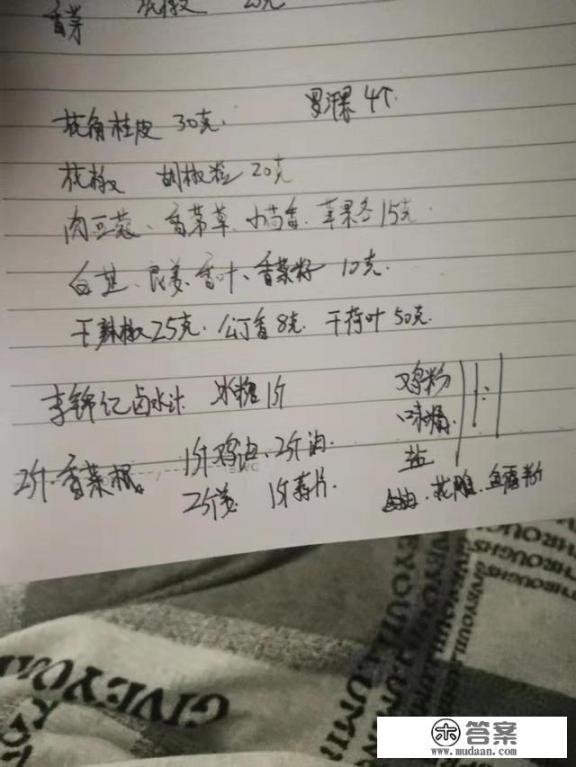 香茅 花椒 25克
桂皮 30克. 罗汉果 4个.
花椒 胡椒粒 20克
肉豆蔻、香茅草、小茴香、苹果各15克.
白芷、良姜、香叶、香菜籽 10克.
干辣椒25克. 公丁香8克. 干荷叶50克.
李锦记卤水汁 冰糖1斤 鸡粉
味精
盐 1:1
2斤香菜根。 1斤鸡油、2斤油
2斤姜 1斤蒜片. 花雕. 鱼露
GIVE YOU
THROUGHS
GIVEYOUILLUMI
答案
www.mudaan.com